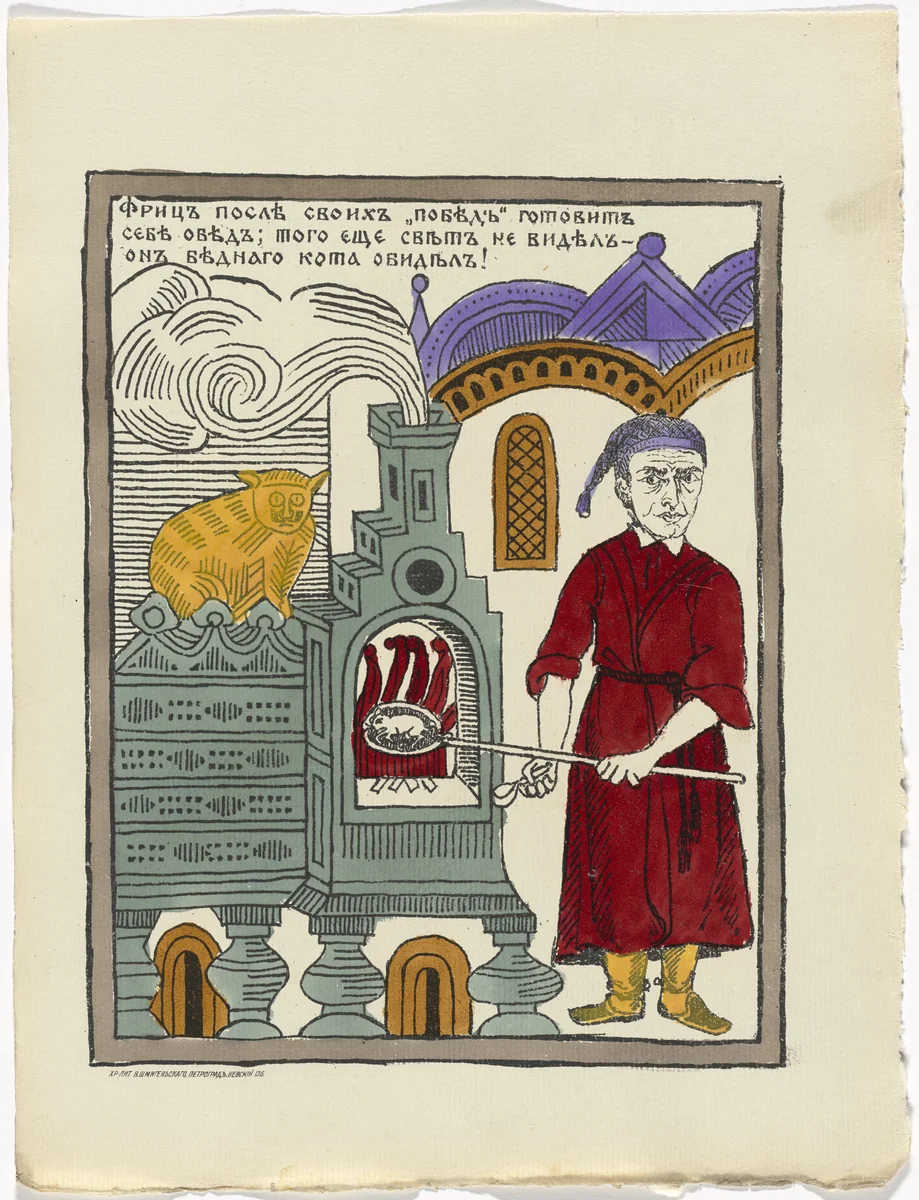 Фрицъ послѣ своихъ „побѣдъ“ готовитъ
себѣ обѣдъ; того еще свѣтъ не видѣлъ–
онъ бѣднаго кота обидѣлъ!
ХР-ЛИТ В.ШМИГЕЛЬСКАГО, ПЕТРОГРАДЪ, НЕВСКІЙ